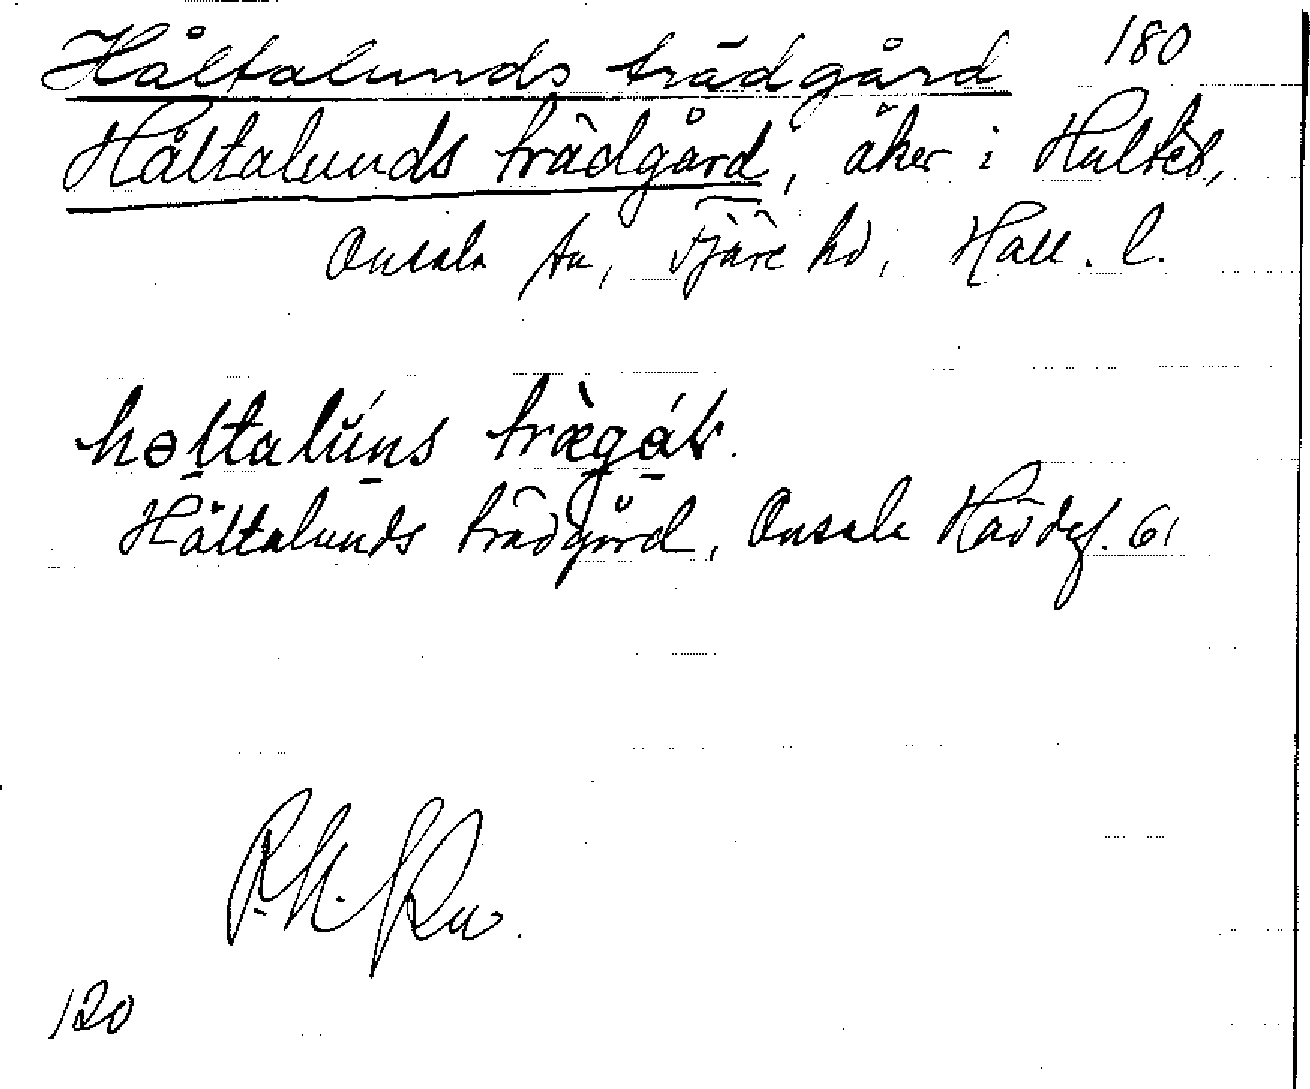 Håltalunds trädgård 180
Håltalunds trädgård, åker i Hultet,
Onsala sn, Fjäre hd, Hall. l.
Håltalunds trädgård, Onsala 61
120